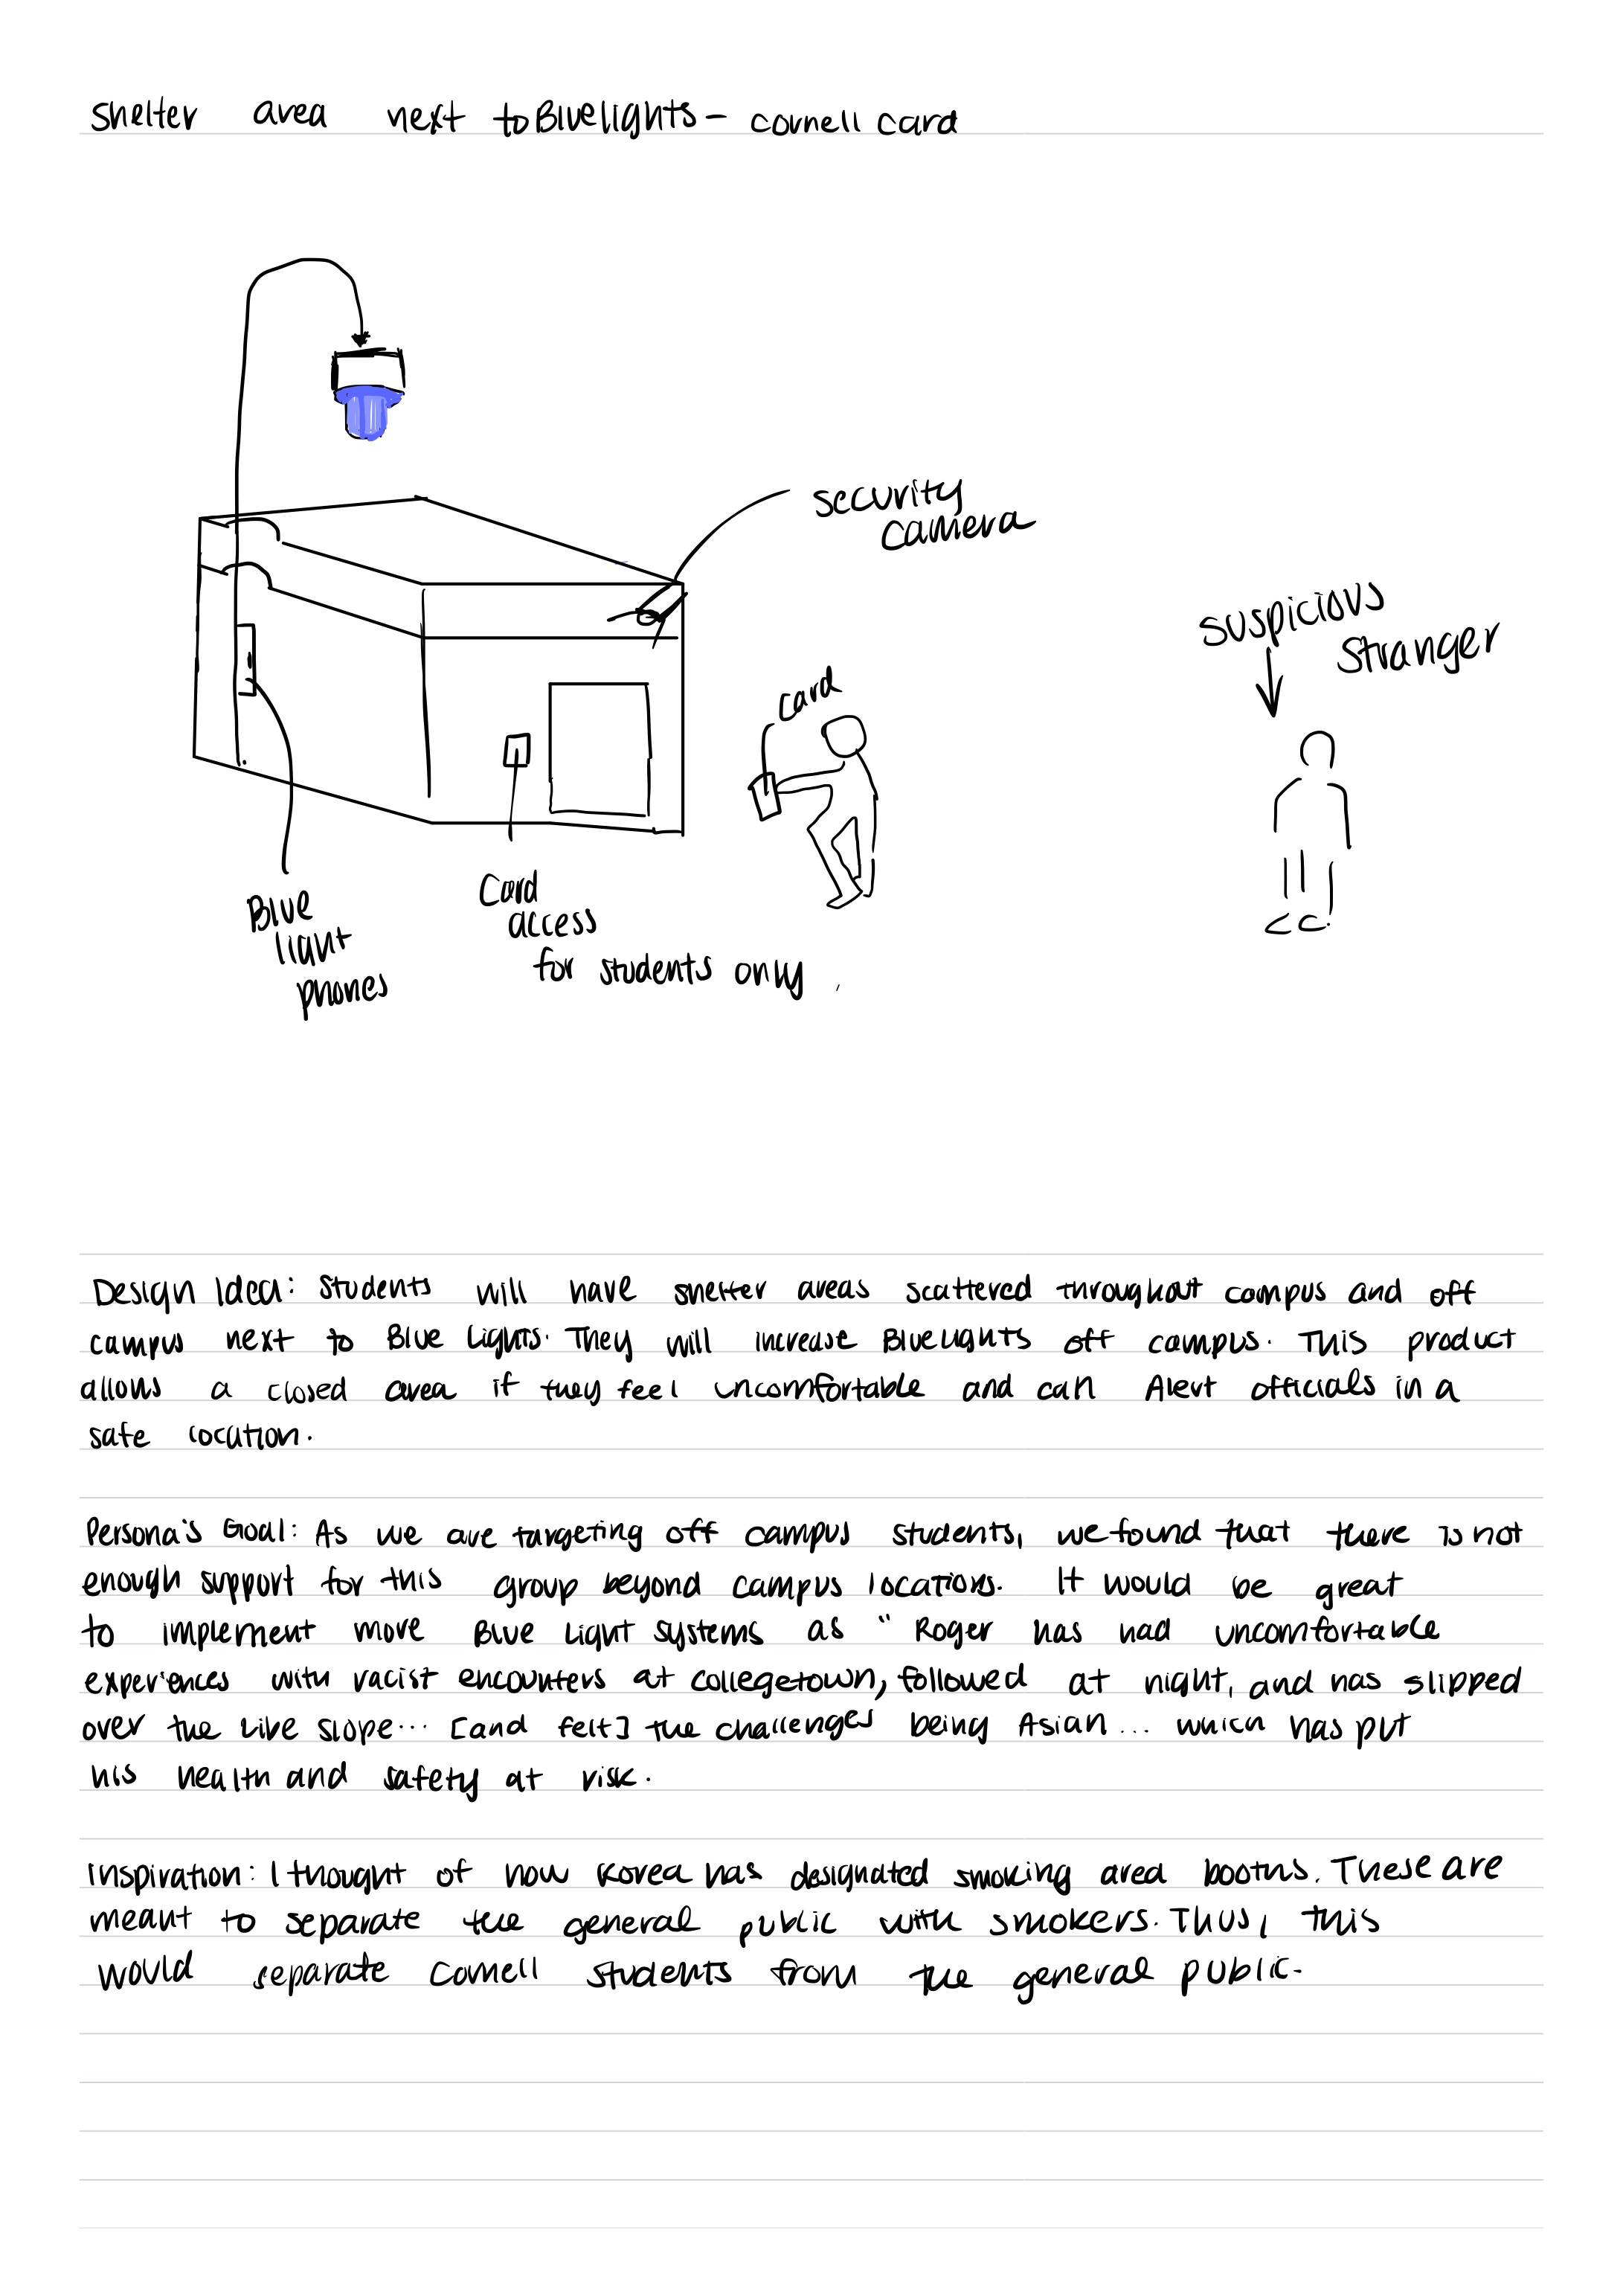 shelter area next to Bluelights - cornell card
security
camera
suspicious
stranger
card
Blue
light
phones
Card
access
for students only
Design Idea: Students will have shelter areas scattered throughout campus and off
campus next to Blue Lights. They will increase Bluelights off campus. This product
allows a closed area if they feel uncomfortable and can Alert officials in a
safe location.
Persona's Goal: As we are targeting off campus students, we found that there is not
enough support for this group beyond campus locations. It would be great
to implement more Blue Light systems as " Roger has had uncomfortable
experiences with racist encounters at collegetown, followed at night, and has slipped
over the Libe slope... [and felt] the challenges being Asian... which has put
his health and safety at risk.
Inspiration: I thought of how Korea has designated smoking area booths. These are
meant to separate the general public with smokers. Thus, this
would separate Cornell students from the general public.